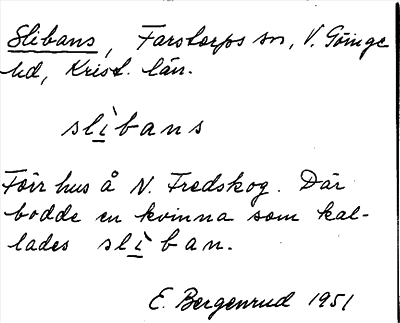 Slibans, Farstorps sn, V. Göinge
hd, Krist. län.
slìbans
Förr hus å N. Fredskog. Där
bodde en kvinna som kal-
lades slìban.
E. Bergenrud 1951